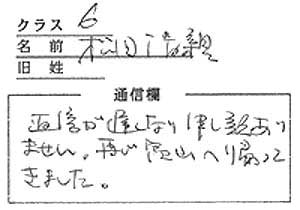 クラス 6
名前 松田
旧姓
通信欄
返信が遅くなり申し訳あり
ません。再び富山へ帰って
きました。